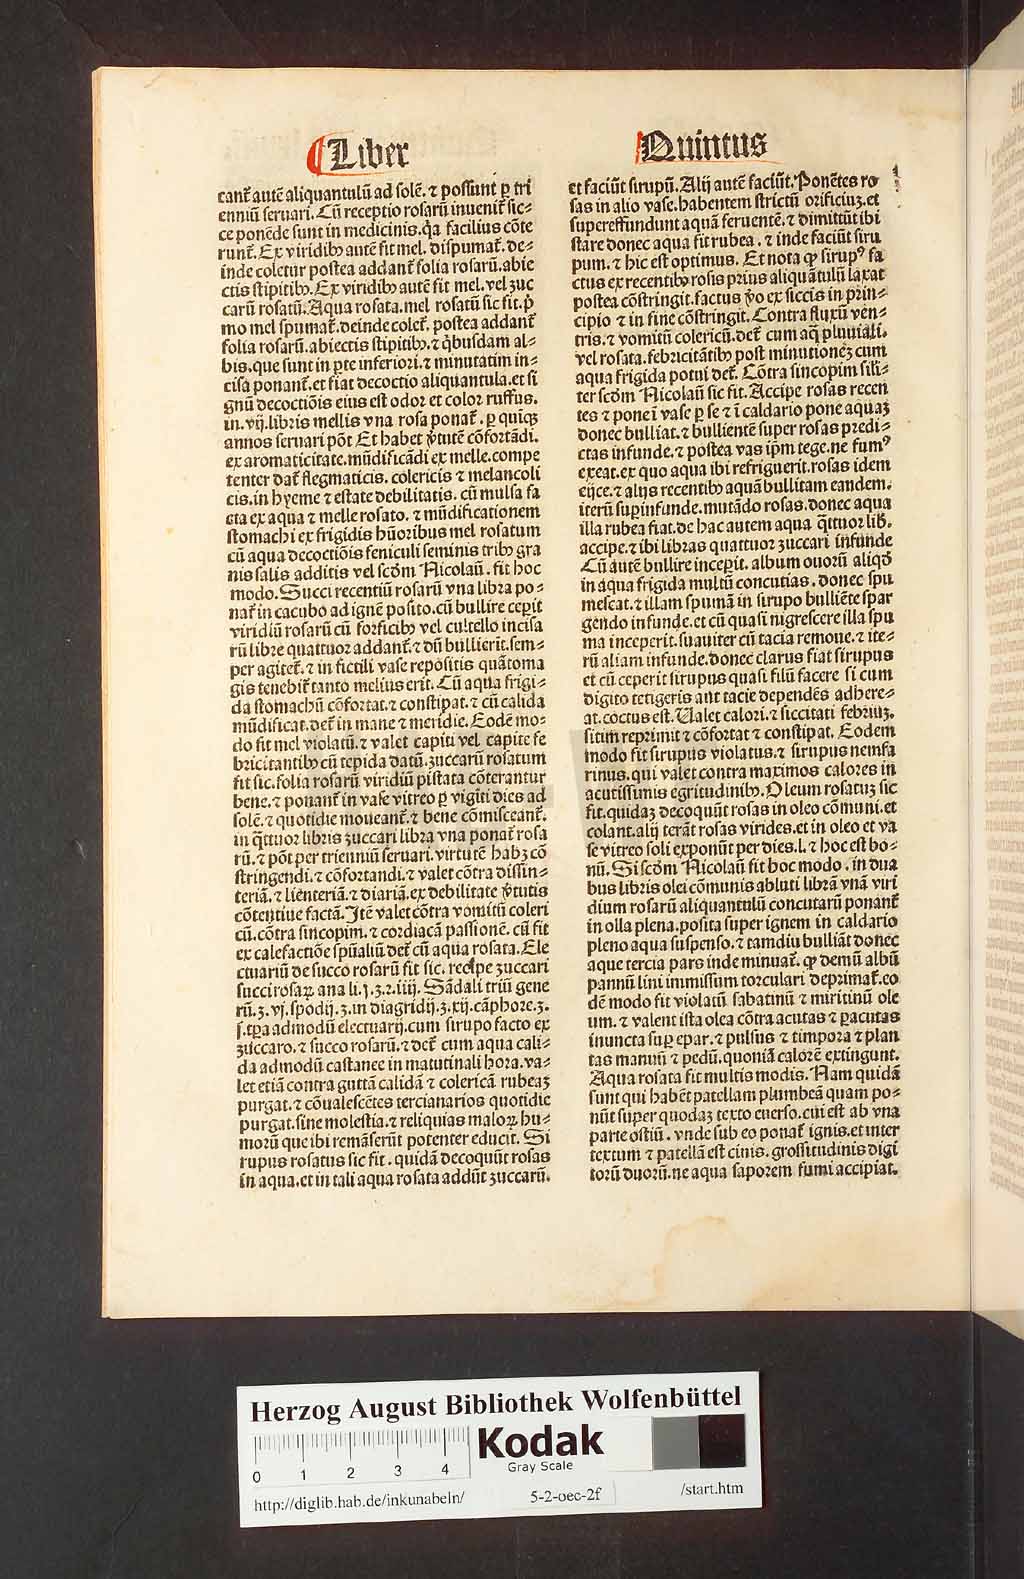 Liber
cant᷑ autē aliquantulū ad solē. ⁊ possunt ꝑ tri
enniū seruari. Cū receptio rosarū inuenit᷑ sic⸗
ce ponēde sunt in medicinis. q̇a facilius cōte
runt᷑. Ex viridibꝫ autē fit mel. dispumat᷑. de⸗
inde coletur postea addant᷑ folia rosarū. abie
ctis stipitibꝫ. Ex viridibꝫ autē fit mel. vel zuc
carū rosatū. Aqua rosata. mel rosatū sic fit. p̄
mo mel spumat᷑. deinde colet᷑. postea addant᷑
folia rosarū. abiectis stipitibꝫ. ⁊ q̇busdam al⸗
bis. que sunt in ꝑte inferiori. ⁊ minutatim in⸗
cisa ponant᷑. et fiat decoctio aliquantula. et si
gnū decoctiōis eius est odor et color ruffus.
in. vij. libris mellis vna rosa ponat᷑. ꝑ quīqꝫ
annos seruari pōt Et habet v̓tutē cōfortādi.
ex aromaticitate. mūdificādi ex melle. compe
tenter dat᷑ flegmaticis. colericis ⁊ melancoli
cis. in hyeme ⁊ estate debilitatis. cū mulsa fa
cta ex aqua ⁊ melle rosato. ⁊ mūdificationem
stomachi ex frigidis hūoribus mel rosatum
cū aqua decoctiōis feniculi seminis tribꝫ gra
nis salis additis vel scdm̄ Nicolaū. fit hoc
modo. Succi recentiū rosarū vna libra po⸗
nat᷑ in cacubo ad ignē posito. cū bullire cepit
viridiū rosarū cū forficibꝫ vel cultello incisa
rū libre quattuor addant᷑. ⁊ dū bullierit. sem⸗
per agitet᷑. ⁊ in fictili vase repositis quātoma
gis tenebit᷑ tanto melius erit. Cū aqua frigi⸗
da stomachū cōfortat. ⁊ constipat. ⁊ cū calida
mūdificat. det᷑ in mane ⁊ meridie. Eodē mo⸗
do fit mel violatū. ⁊ valet capiti vel capite fe
bricitantibꝫ cū tepida datū. zuccarū rosatum
fit sic. folia rosarū viridiū pistata cōterantur
bene. ⁊ ponant᷑ in vase vitreo ꝑ vigīti dies ad
solē. ⁊ quotidie moueant᷑. ⁊ bene cōmisceant᷑.
in q̄ttuor libris zuccari libra vna ponat᷑ rosa
rū. ⁊ pōt per trienniū seruari. virtutē habꝫ cō
stringendi. ⁊ cōfortandi. ⁊ valet cōtra dissin⸗
teriā. ⁊ lienteriā. ⁊ diariā. ex debilitate v̓tutis
cōtentiue factā. Itē valet cōtra vomitū coleri
cū. cōtra sincopim. ⁊ cordiacā passionē. cū fit
ex calefactiōe spūaliū det᷑ cū aqua rosata. Ele
ctuariū de succo rosarū fit sic. recipe zuccari
succi rosaꝝ ana li. j. ʒ. ⁊. iiij. Sādali triū gene
rū. ʒ. vj. spodij. ʒ. in diagridij. ʒ. xij. cāphore. ʒ.
ſ. tꝑa admodū electuarij. cum sirupo facto ex
zuccaro. ⁊ succo rosarū. ⁊ det᷑ cum aqua cali⸗
da admodū castanee in matutinali hora. va⸗
let etiā contra guttā calidā ⁊ colericā rubeaꝫ
purgat. ⁊ cōualescētes tercianarios quotidie
purgat. sine molestia. ⁊ reliquias maloꝝ hu⸗
morū que ibi remāserūt potenter educit. Si
rupus rosatus sic fit. quidā decoquūt rosas
in aqua. et in tali aqua rosata addūt zuccarū.
Quintus
et faciūt sirupū. Alij autē faciūt. Ponētes ro
sas in alio vase. habentem strictū orificiuꝫ. et
supereffundunt aquā feruentē. ⁊ dimittūt ibi
stare donec aqua fit rubea. ⁊ inde faciūt siru
pum. ⁊ hic est optimus. Et nota ꝙ sirupꝰ fa
ctus ex recentibꝫ rosis prius aliquātulū laxat
postea cōstringit. factus v̓o ex siccis in prin⸗
cipio ⁊ in fine cōstringit. Contra fluxū ven⸗
tris. ⁊ vomitū colericū. det᷑ cum aq̄ pluuiali.
vel rosata. febricitātibꝫ post minutioneꝫ cum
aqua frigida potui det᷑. Cōtra sincopim sili⸗
ter scdm̄ Nicolaū sic fit. Accipe rosas recen
tes ⁊ pone ī vase ꝑ se ⁊ ī caldario pone aquaꝫ
donec bulliat. ⁊ bullientē super rosas predi⸗
ctas infunde. ⁊ postea vas ip̄m tege. ne fumꝰ
exeat. ex quo aqua ibi refriguerit. rosas idem
eijce. ⁊ alijs recentibꝫ aquā bullitam eandem.
iterū suꝑinfunde. mutādo rosas. donec aqua
illa rubea fiat. de hac autem aqua q̄ttuor lib̄.
accipe. ⁊ ibi libras quattuor zuccari infunde
Cū autē bullire inceperit. album ouorū aliqđ
in aqua frigida multū concutias. donec spu
mescat. ⁊ illam spumā in sirupo bulliēte spar
gendo infunde. et cū quasi nigrescere illa spu
ma inceperit. suauiter cū tacia remoue. ⁊ ite⸗
rū aliam infunde. donec clarus fiat sirupus
et cū ceperit sirupus quasi filū facere si cum
digito tetigeris aut tacie dependēs adhere⸗
at. coctus est. Valet calori. ⁊ siccitati febriuꝫ.
sitim reprimit ⁊ cōfortat ⁊ constipat. Eodem
modo fit sirupus violatus. ⁊ sirupus nenufa
rinus. qui valet contra maximos calores in
acutissimis egritudinibꝫ. Oleum rosatuꝫ sic
fit. quidaꝫ decoquūt rosas in oleo cōmuni. et
colant. alij terāt rosas virides. et in oleo et va
se vitreo soli exponūt per dies. l. ⁊ hoc est bo⸗
nū. Si scdm̄ Nicolaū fit hoc modo. in dua
bus libris olei cōmunis abluti librā vnā viri
dium rosarū aliquantulū concutarū ponant᷑
in olla plena. posita super ignem in caldario
pleno aqua suspenso. ⁊ tamdiu bulliāt donec
aque tercia pars inde minuat᷑. ꝙ demū albū
pannū lini immissum torculari deprimat᷑. eo
dē modo fit violatū sabatinū ⁊ mirtinū ole
um. ⁊ valent ista olea cōtra acutas ⁊ ꝑacutas
inuncta suꝑ epar. ⁊ pulsus ⁊ timpora ⁊ plan
tas manuū ⁊ pedū. quoniā calorē extingunt.
Aqua rosata fit multis modis. Nam quidā
sunt qui habēt patellam plumbeā quam po⸗
nūt super quodaꝫ texto euerso. cui est ab vna
parte ostiū. vnde sub eo ponat᷑ ignis. et inter
textum ⁊ patellā est cinis. grossitudinis digi
torū duorū. ne aqua saporem fumi accipiat.
Herzog August Bibliothek Wolfenbüttel
0 1 2 3 4
Kodak
Gray Scale
http://diglib.hab.de/inkunabeln/ 5-2-oec-2f /start.htm